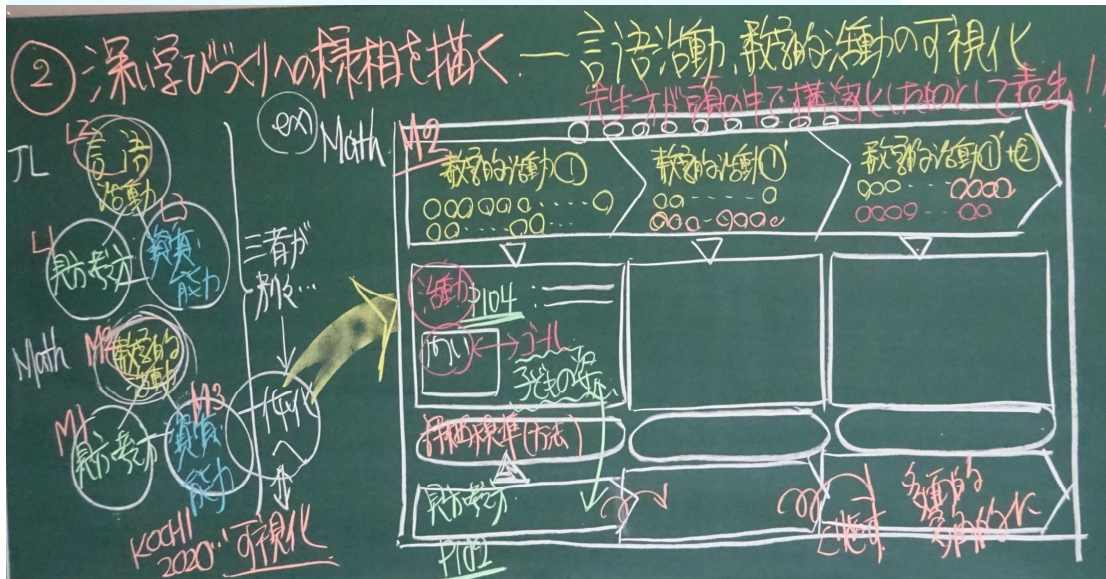 ② 深い学びづくりへの様相を描く ― 言語活動、数学的活動の可視化
先生方が頭の中で構造化したものとして表出!!
JL
L2
言語
活動
L1
見方・考え方
L3
資質・
能力
Math
M2
数学的
活動
M1
見方・考え方
M3
資質・
能力
三者が
別々…
一体化
へ
KOCHI
2020…
可視化
ex)
Math
M2
数学的な活動①
数学的な活動①'
数学的な活動①'+②
活動
P104
ねらい
ゴール
子どもの姿
評価規準(方法)
見方・考え方
P102